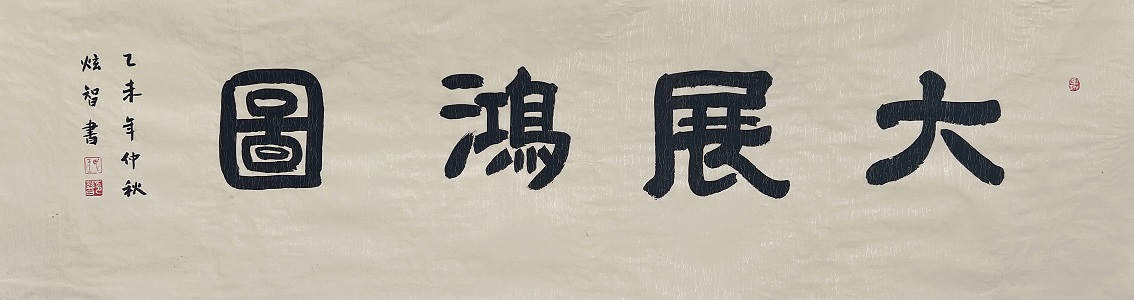 大展鴻圖
乙未年仲秋
炫智書